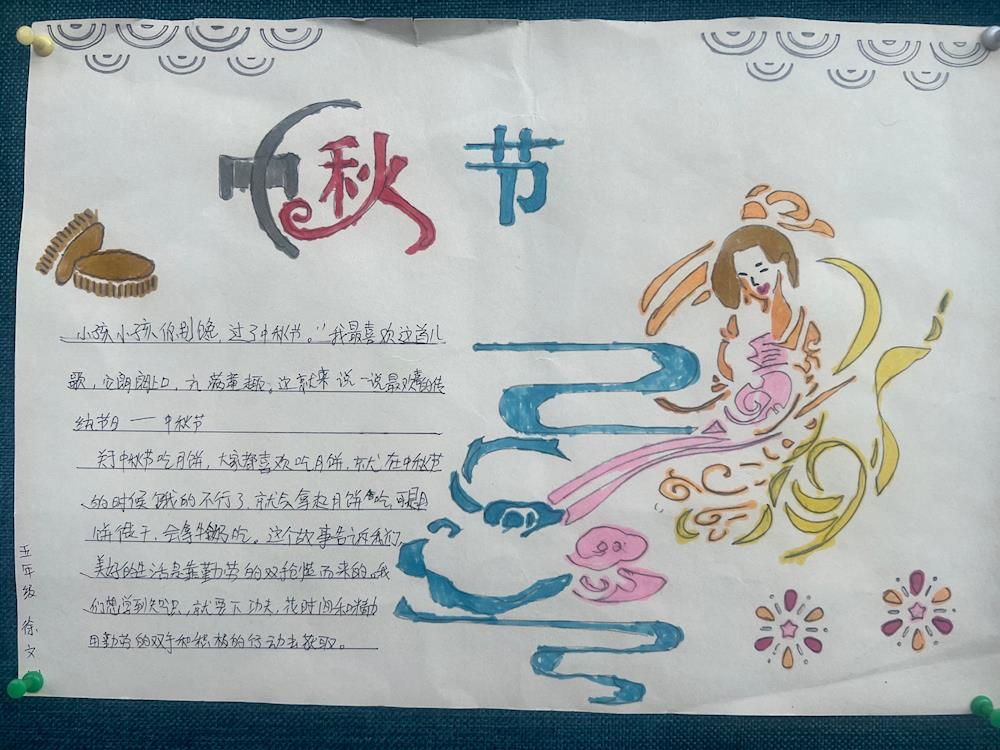 中秋节
小孩小孩你别馋,过了中秋节。"我最喜欢这首儿
歌,它朗朗上口,充满童趣。这就来说一说最欢喜的传
统节日——中秋节
关于中秋节吃月饼,大家都喜欢吃月饼,就在中秋节
的时候饿的不行了,就会拿起月饼吃,可是月
饼很干,会拿牛奶吃。这个故事告诉我们,
美好的生活是靠勤劳的双手而来的。我
们想学到知识,就要下功夫,花时间和精力
用勤劳的双手和积极的行动去获取。
五年级 徐文